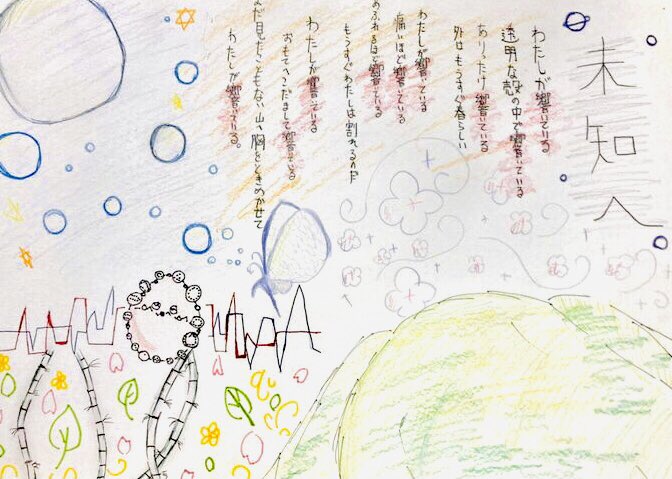 未知へ
わたしが響いている
透明な殻の中で響いている
ありったけ響いている
外はもうすぐ春らしい
わたしが響いている
痛いほど響いている
あふれるほど響いている
もうすぐわたしは割れるのだ
わたしが響いている
おもてへこだまして響いている
まだ見たこともない山へ胸をときめかせて
わたしが響いている。